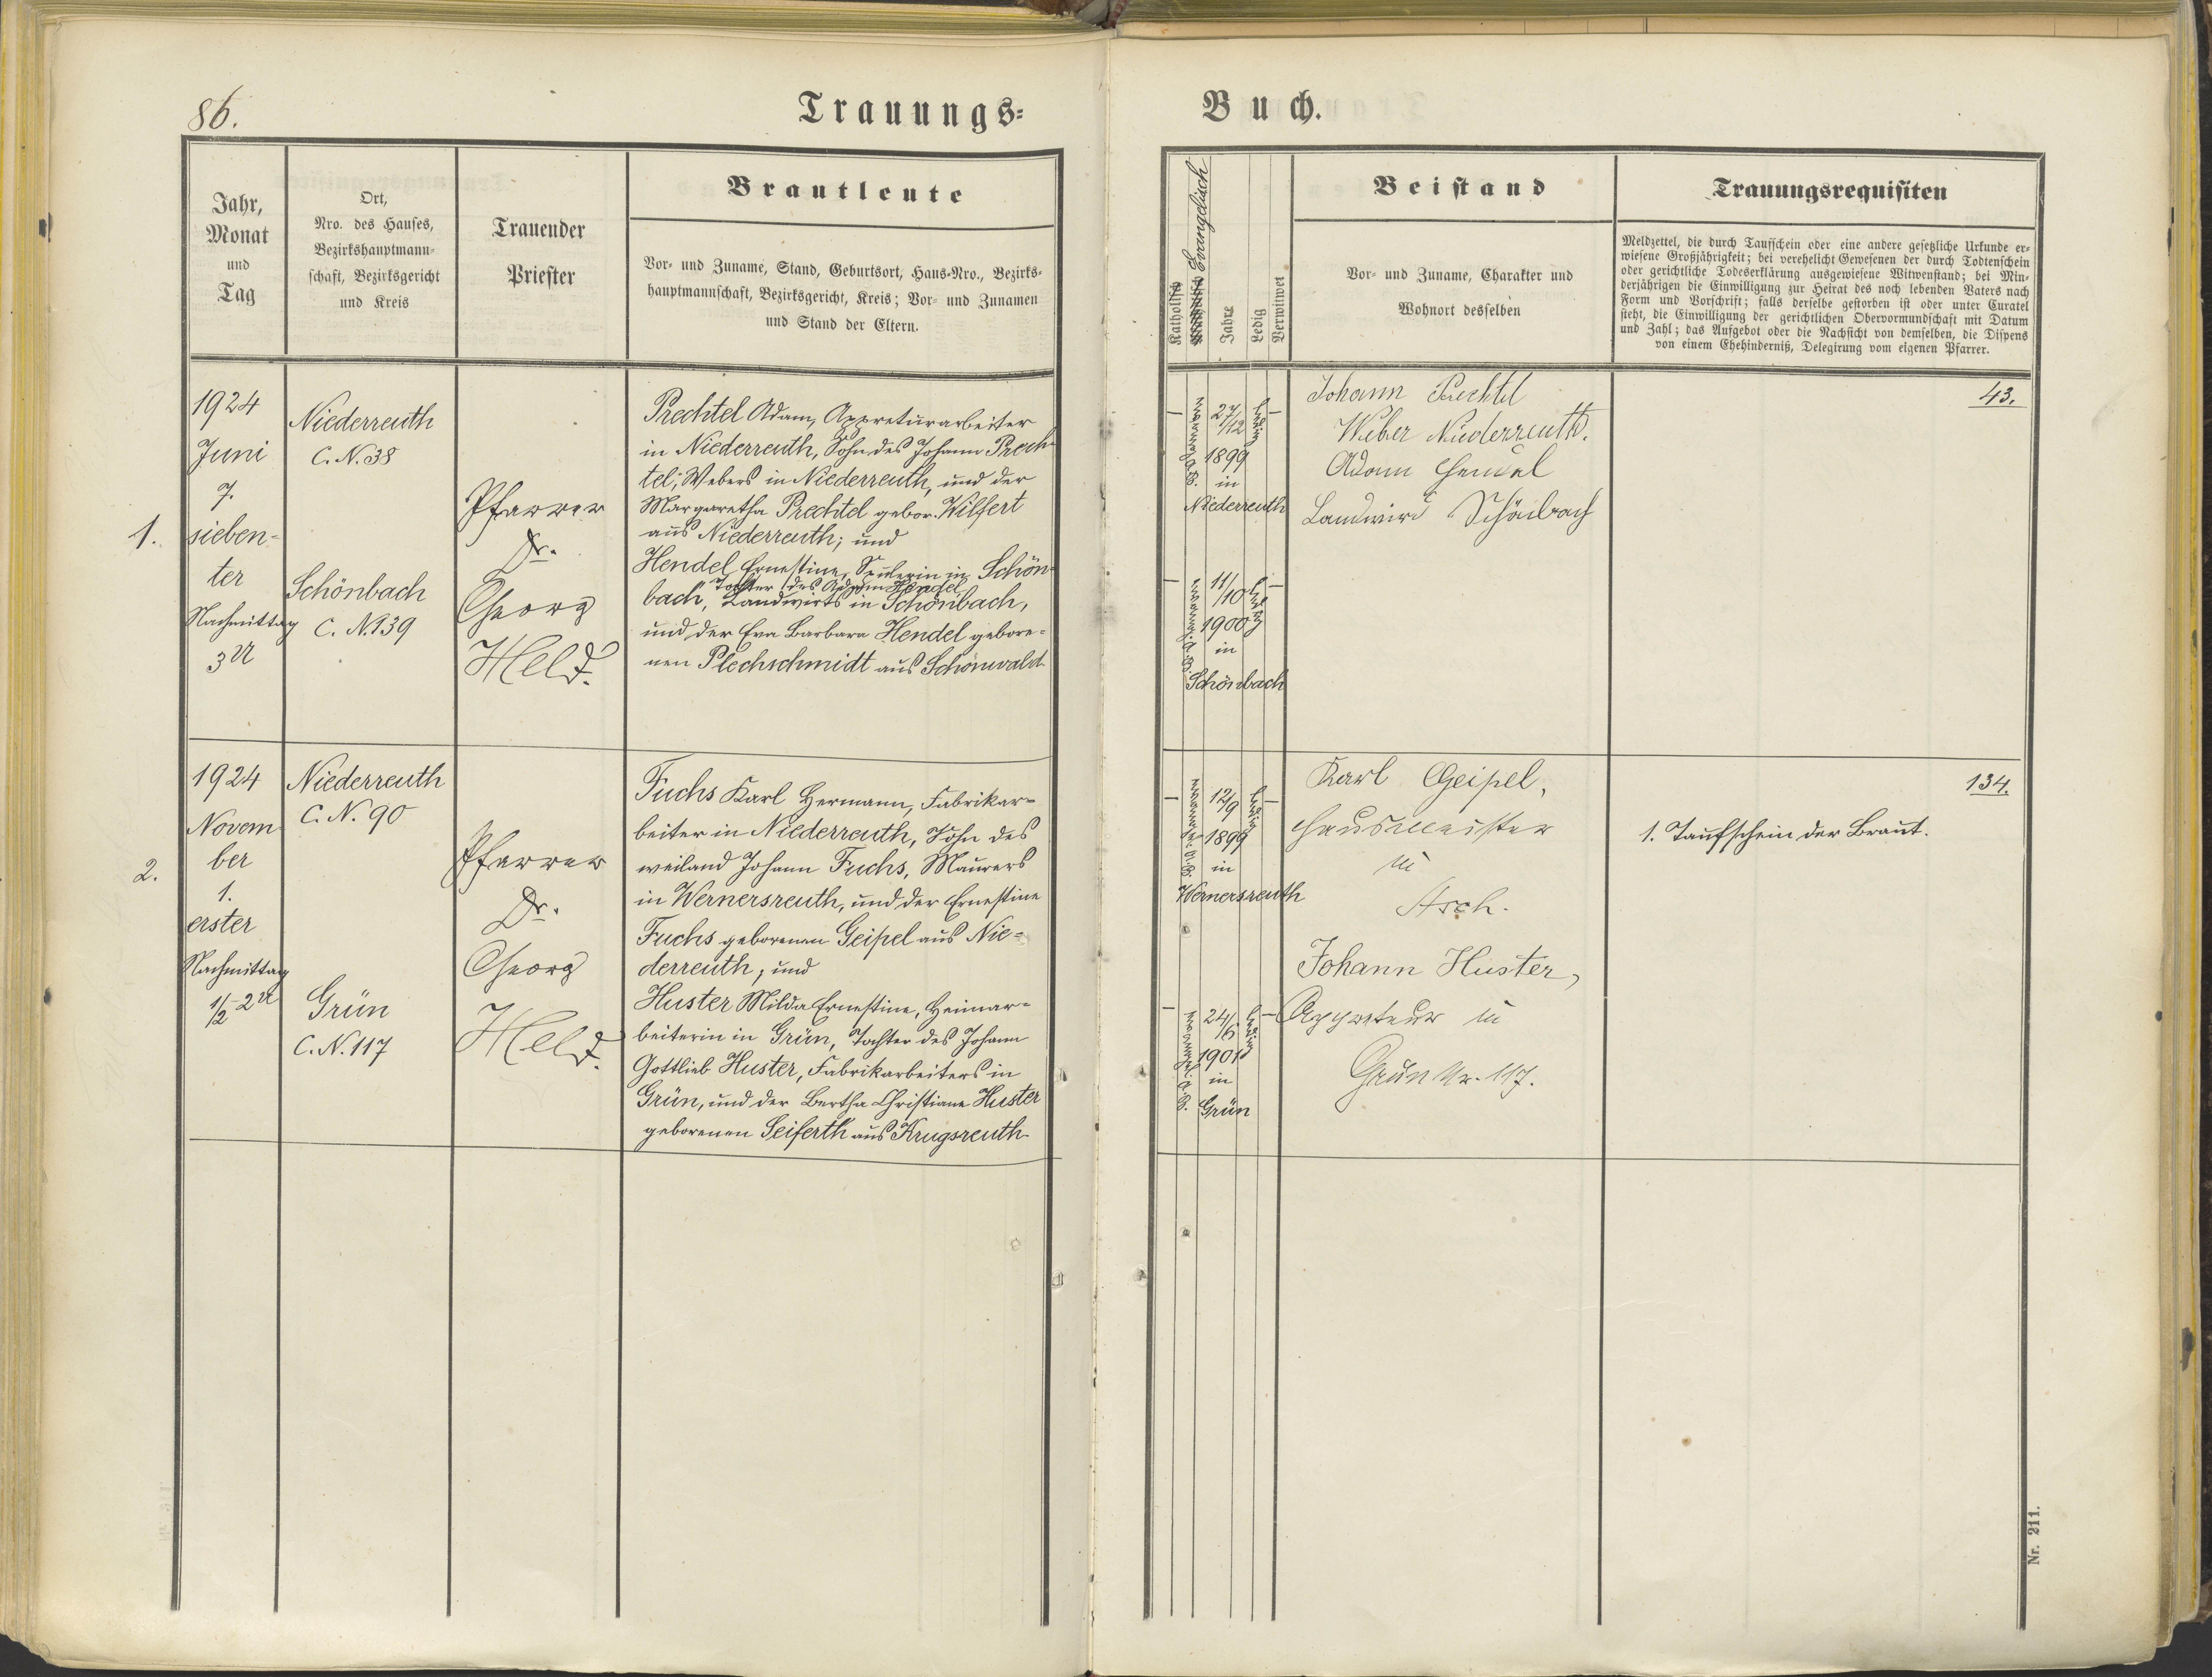 86.
Trauungs=
Buch.
Jahr,
Monat
und
Tag
Ort,
Nro. des Hauses,
Bezirkshauptmann-
schaft, Bezirksgericht
und Kreis
Trauender
Priester
Brautleute
Vor- und Zuname, Stand, Geburtsort, Haus-Nro., Bezirks-
hauptmannschaft, Bezirksgericht, Kreis; Vor- und Zunamen
und Stand der Eltern.
Katholisch
Evangelisch
Jahre
Ledig
Verwitwet
Beistand
Vor- und Zuname, Charakter und
Wohnort desselben
Trauungsrequisiten
Meldzettel, die durch Taufschein oder eine andere gesetzliche Urkunde er-
wiesene Großjährigkeit; bei verehelicht Gewesenen der durch Todtenschein
oder gerichtliche Todeserklärung ausgewiesene Witwenstand; bei Min-
derjährigen die Einwilligung zur Heirat des noch lebenden Vaters nach
Form und Vorschrift; falls derselbe gestorben ist oder unter Curatel
steht, die Einwilligung der gerichtlichen Obervormundschaft mit Datum
und Zahl; das Aufgebot oder die Nachsicht von demselben, die Dispens
von einem Ehehinderniß, Delegirung vom eigenen Pfarrer.
1.
1924
Juni
7.
sieben-
ter
Nachmittag
3 U
Niederreuth
C. N. 38
Schönbach
C. N. 139
Pfarrer
Dr.
Georg
Held.
Prechtel Adam, Appreturarbeiter
in Niederreuth, Sohn des Johann Prech-
tel, Webers in Niederreuth, und der
Margaretha Prechtel gebor. Wilfert
aus Niederreuth; und
Hendel Ernestine, Spulerin in Schön-
Tochter des Adam Hendel,
bach, Landwirts in Schönbach,
und der Eva Barbara Hendel gebore-
nen Plechschmidt aus Schönwald
27/12
1899
in
Niederreuth
ledig
11/10
1900
in
Schönbach
ledig
Johann Prechtel
Weber Niederreuth.
Adam Hendel
Landwird Schönbach
43.
2.
1924
Novem
ber
1.
erster
Nachmittag
1/2 2 U
Niederreuth
C. N. 90
Grün
C. N. 117
Pfarrer
Dr.
Georg
Held.
Fuchs Karl Hermann, Fabrikar-
beiter in Niederreuth, Sohn des
weiland Johann Fuchs, Maurers
in Wernersreuth, und der Ernestine
Fuchs geborenen Geipel aus Nie-
derreuth; und
Huster Milda Ernestine, Heimar-
beiterin in Grün, Tochter des Johann
Gottlieb Huster, Fabrikarbeiters in
Grün, und der Bertha Christiane Huster
geborenen Seiferth aus Krugsreuth
12/9
1899
in
Wernersreuth
ledig
24/6
1901
in
Grün
ledig
Karl Geipel,
Hausmeister
in
Asch.
Johann Huster,
Appreteur in
Grün Nr. 117.
134.
1. Taufschein der Braut.
Nr. 211.